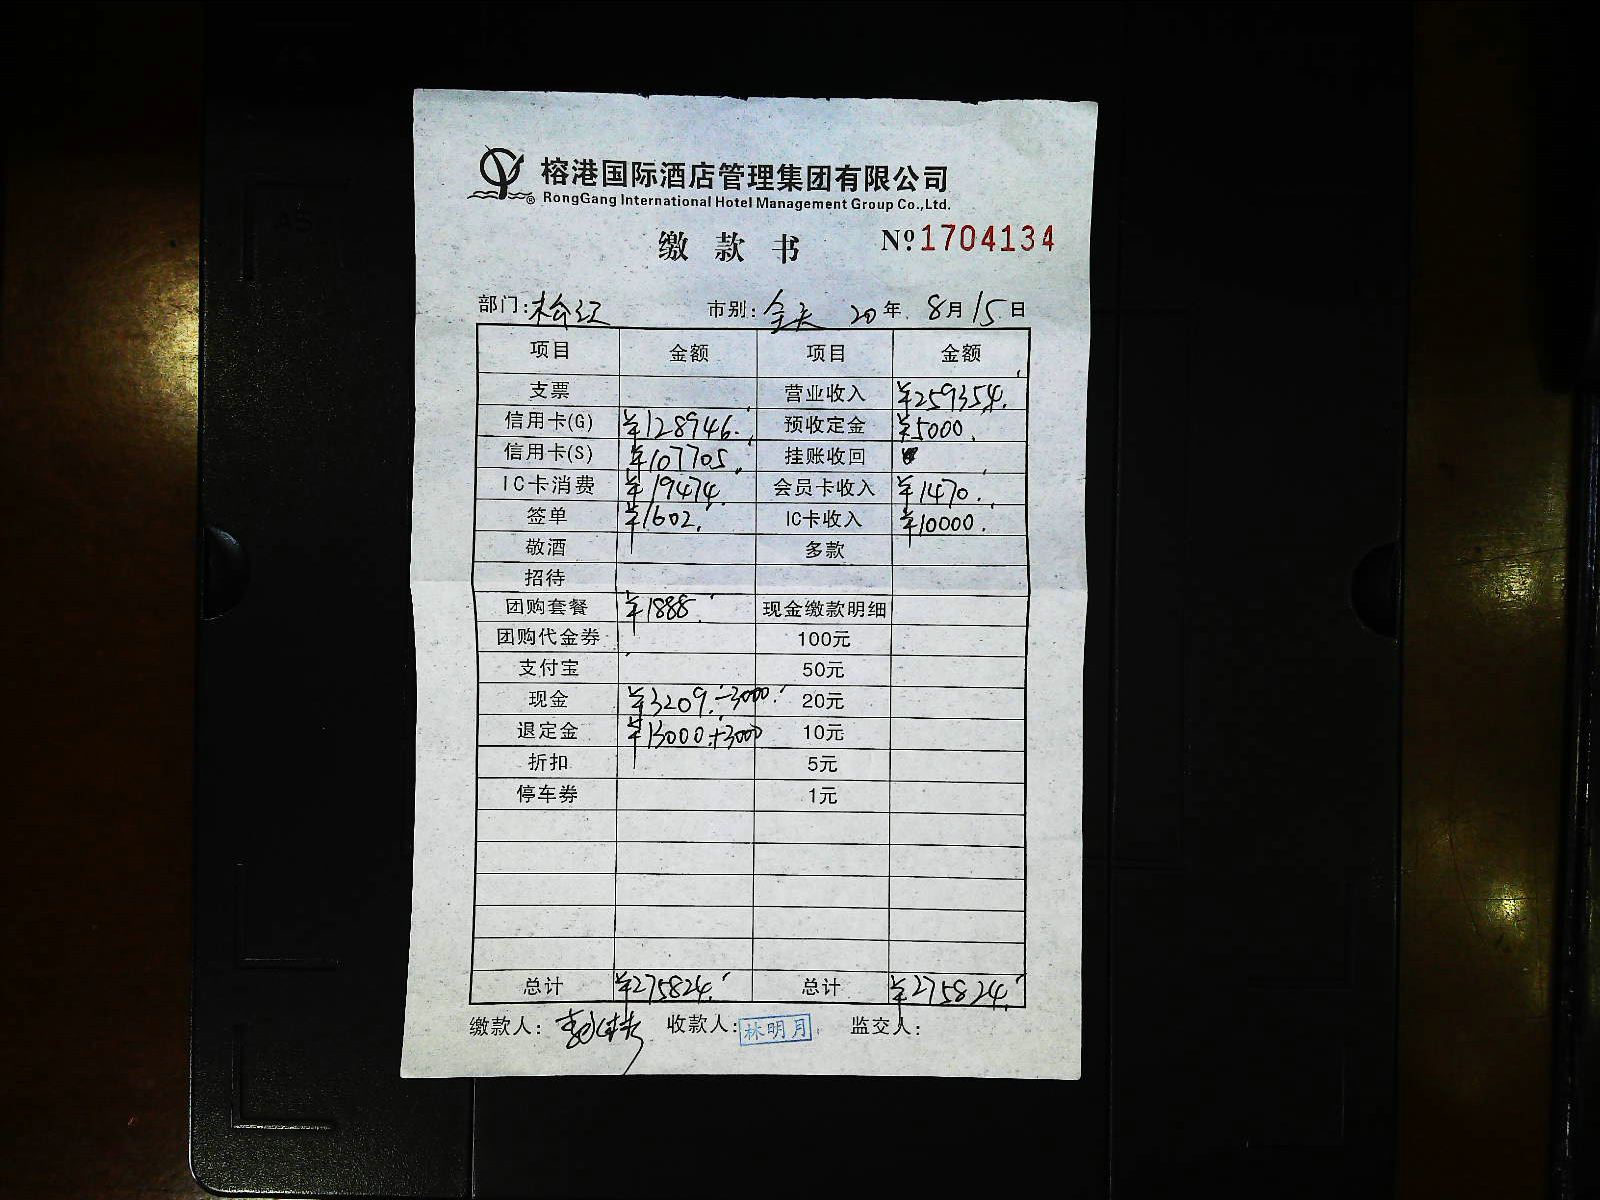 榕港国际酒店管理集团有限公司
® RongGang International Hotel Management Group Co.,Ltd.
缴 款 书 Nº 1704134
部门: 市别: 全天 20年 8月15日
项目 金额 项目 金额
支票 营业收入 ¥259354.
信用卡(G) ¥128946. 预收定金 ¥5000.
信用卡(S) ¥107705. 挂账收回
IC卡消费 ¥19474. 会员卡收入 ¥1470.
签单 ¥1602. IC卡收入 ¥10000.
敬酒 多款
招待
团购套餐 ¥1888. 现金缴款明细
团购代金券 100元
支付宝 50元
现金 ¥3209.-3000. 20元
退定金 ¥13000.+3000 10元
折扣 5元
停车券 1元
总计 ¥275824. 总计 ¥275824.
缴款人: 收款人: 林明月 监交人: